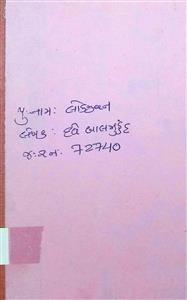 પુ.નામ: લોકજીવન
લેખક: દવે બાલમુકુંદ
જ.ર.નં. 72740